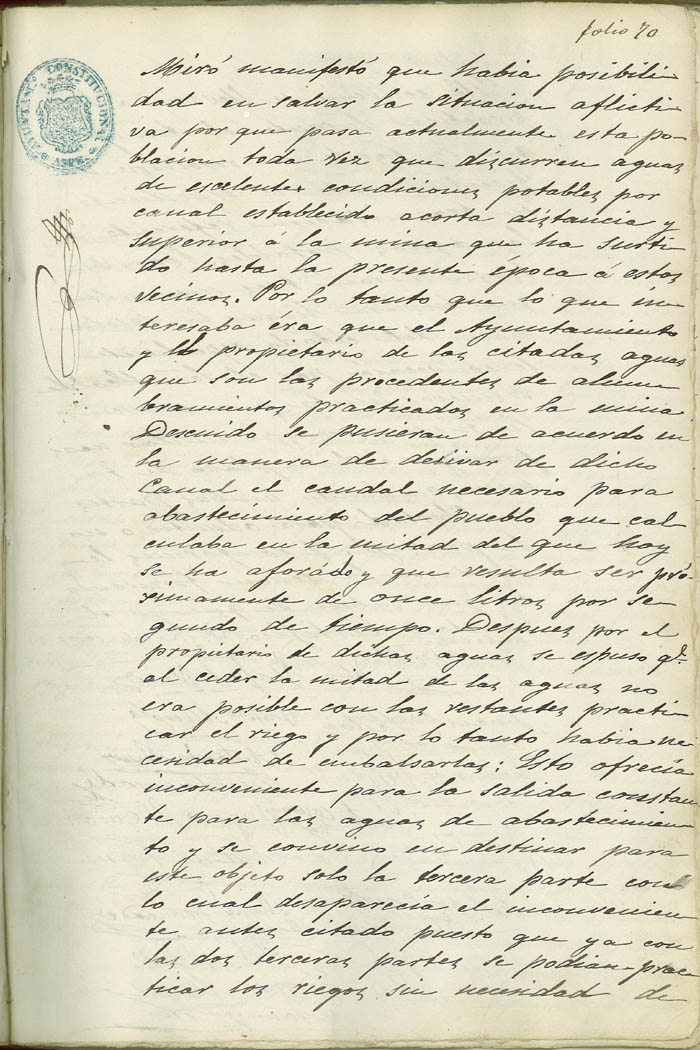 folio 70
AYUNTAMTO CONSTITUCIONAL
ASPE
Miró manifestó que habia posibili
dad en salvar la situacion aflicti
va por que pasa actualmente esta po-
blacion toda vez que discurren aguas
de escelentes condiciones potables por
canal establecido acorta distancia y
superior á la mina que ha surti
do hasta la presente época á estos
vecinos. Por lo tanto que lo que in
teresaba éra que el Ayuntamiento
y el propietario de las citadas aguas
que son las procedentes de alum
bramientos practicados en la mina
Descuido se pusieran de acuerdo en
la manera de derivar de dicho
Canal el caudal necesario para
abastecimiento del pueblo que cal
culaba en la mitad del que hoy
se ha aforádo y que resulta ser pró
ximamente de once litros por se
gundo de tiempo. Despues por el
propietario de dichas aguas se espuso qe.
al ceder la mitad de las aguas no
era posible con las restantes practi
car el riego y por lo tanto habia ne
cesidad de embalsarlas; Esto ofrecia
inconveniente para la salida constan
te para las aguas de abastecimien
to y se convino en destinar para
este objeto solo la tercera parte con
lo cual desaparecía el inconvenien
te antes citado puesto que ya con
las dos terceras partes se podian prac
ticar los riegos sin necesidad de